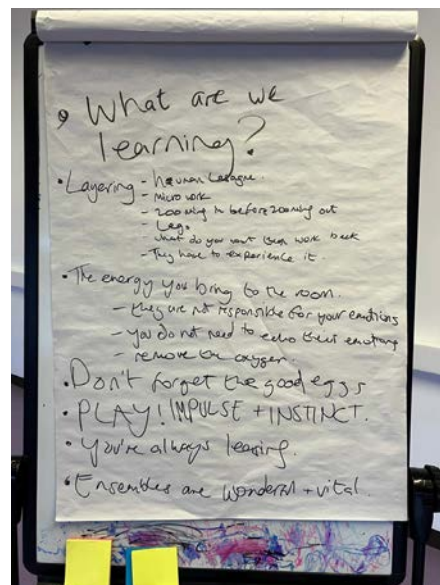 • What are we
learning?
• Layering - human lasagne.
- micro work
- zooming in before zooming out
- Lego.
what do you want then work back
- They have to experience it.
• The energy you bring to the room.
- they are not responsible for your emotions
- you do not need to echo their emotions
- remove the oxygen.
• Don't forget the good eggs
• PLAY! IMPULSE + INSTINCT.
• You're always learning.
• Ensembles are wonderful + vital.